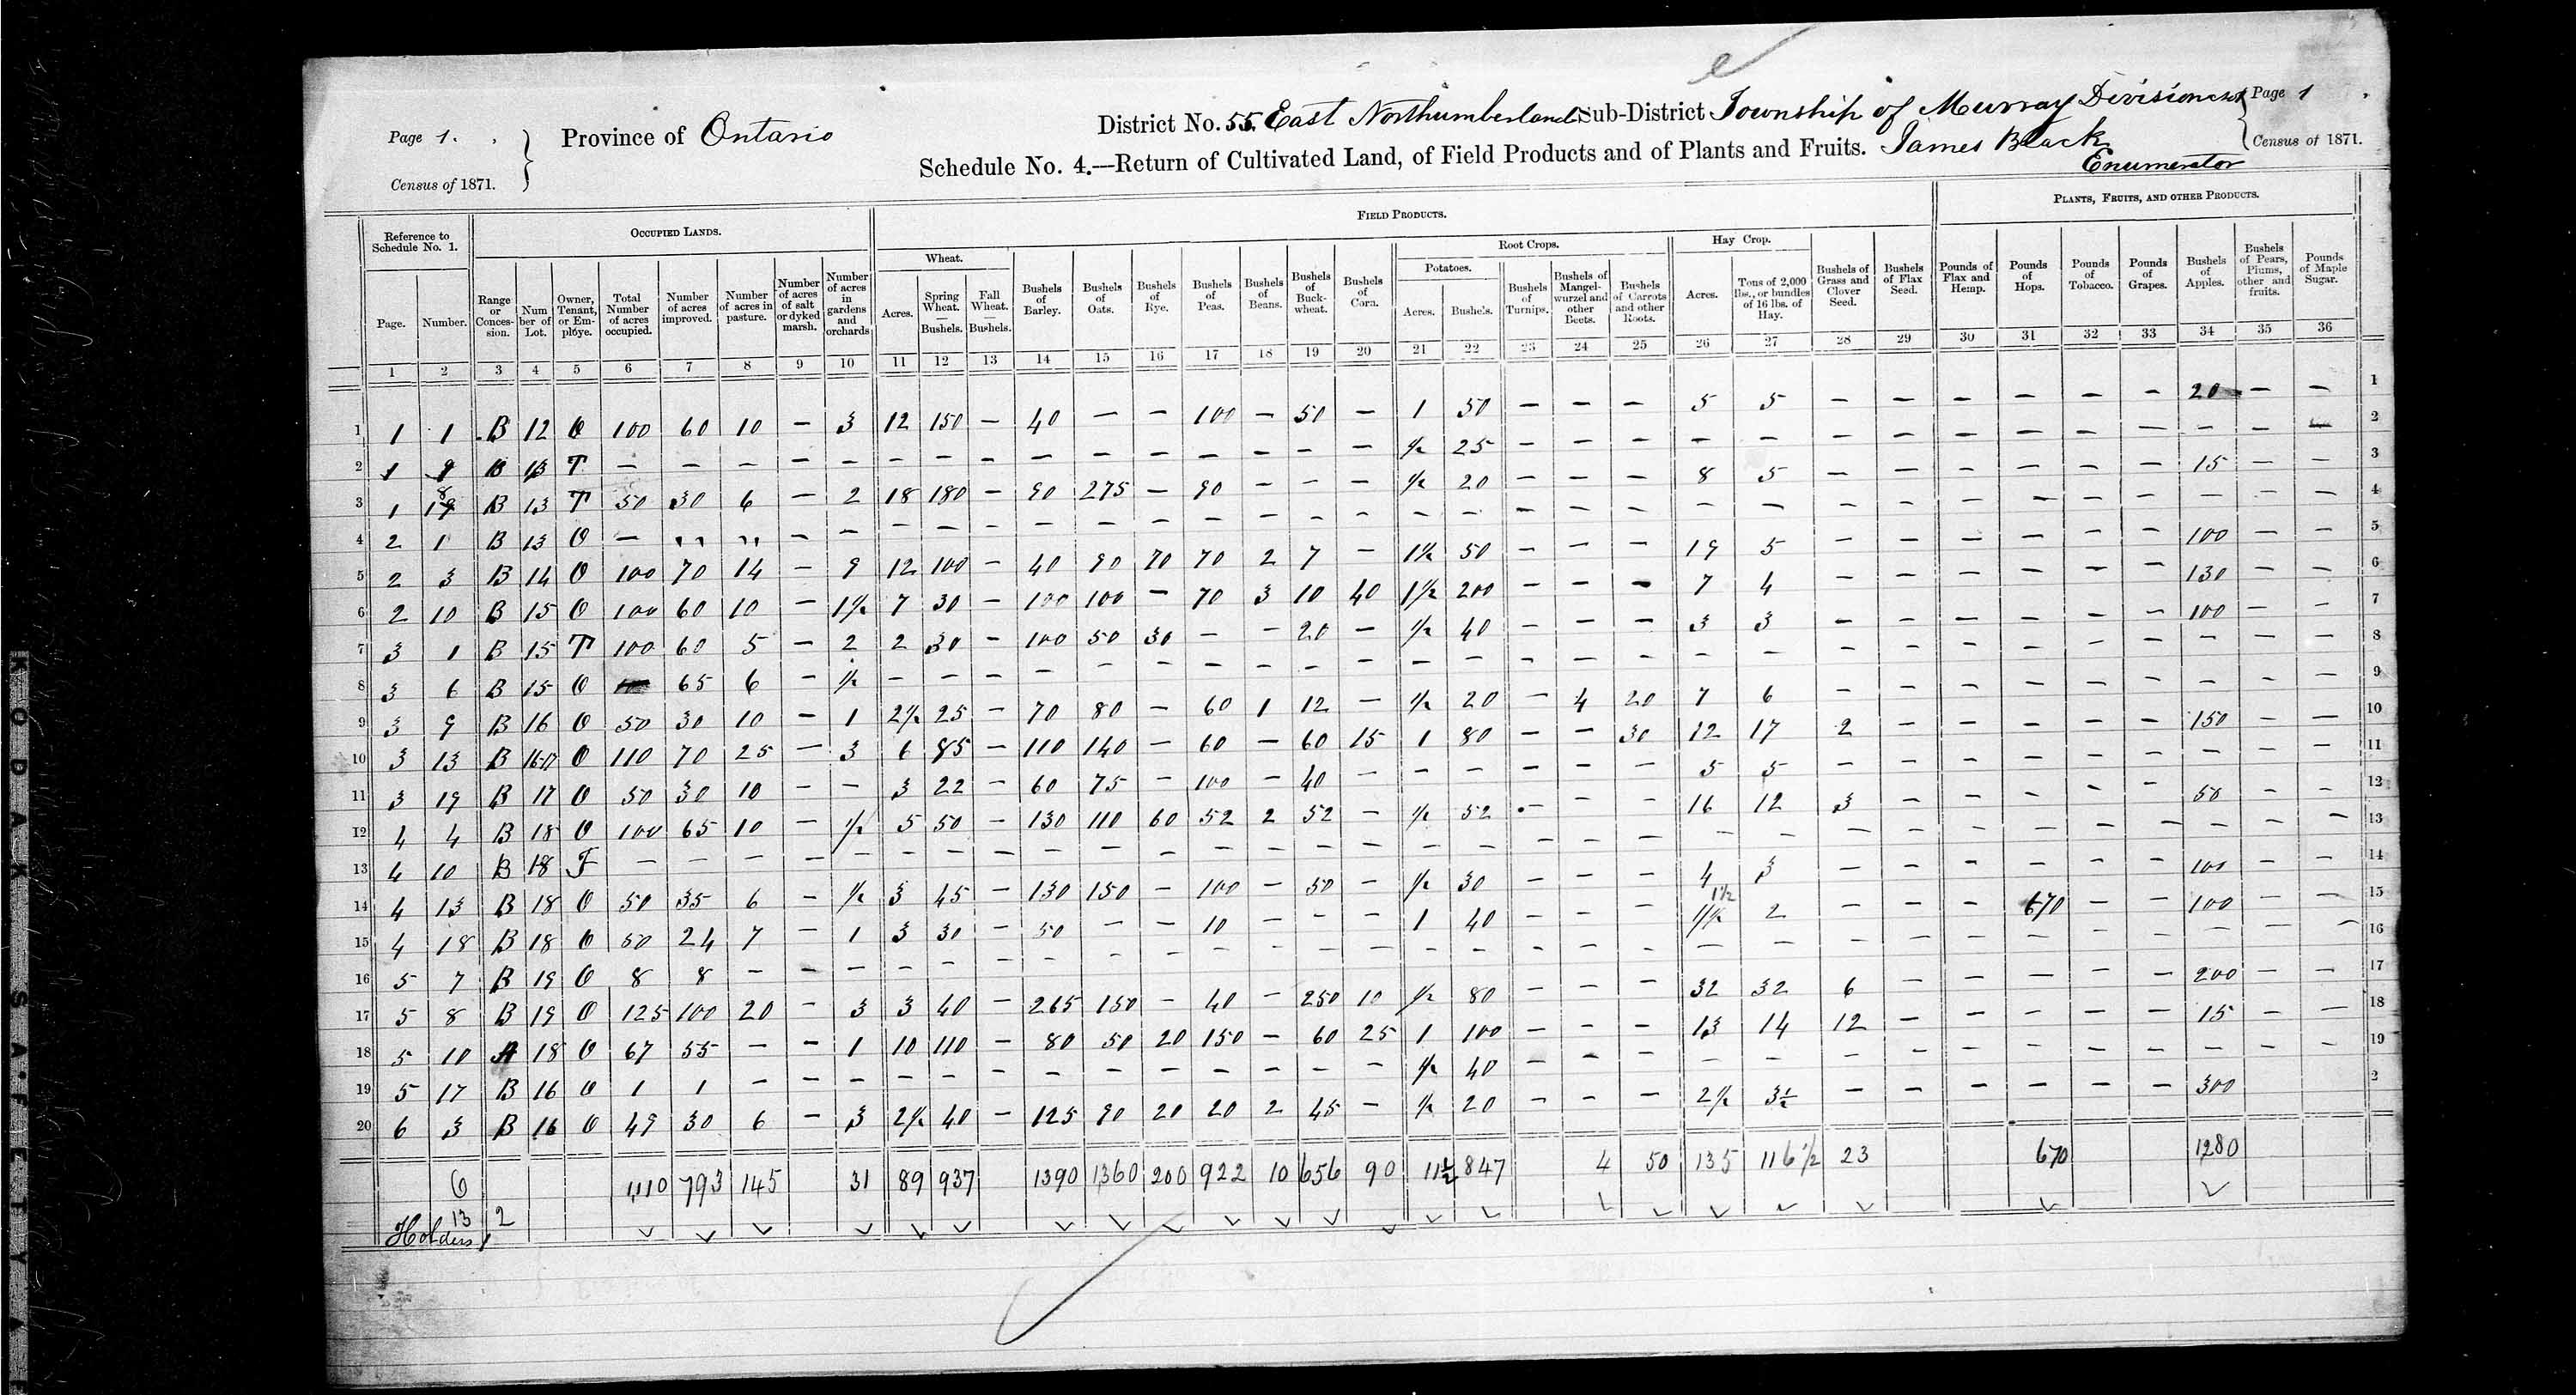 Page 1.
Census of 1871.
Province of Ontario
District No. 55. East Northumberland Sub-District Township of Murray Division
Page 1
Schedule No. 4.—Return of Cultivated Land, of Field Products and of Plants and Fruits. James Black
Census of 1871.
Enumerator
Reference to Schedule No. 1.
OCCUPIED LANDS.
FIELD PRODUCTS.
PLANTS, FRUITS, AND OTHER PRODUCTS.
Wheat.
Root Crops.
Potatoes.
Hay Crop.
Page.
Number.
Range or Conces-sion.
Num ber of Lot.
Owner, Tenant, or Em-ploye.
Total Number of acres occupied.
Number of acres improved.
Number of acres in pasture.
Number of acres of salt or dyked marsh.
Number of acres in gardens and orchards
Acres.
Spring Wheat. — Bushels.
Fall Wheat. — Bushels.
Bushels of Barley.
Bushels of Oats.
Bushels of Rye.
Bushels of Peas.
Bushels of Beans.
Bushels of Buck-wheat.
Bushels of Corn.
Acres.
Bushels.
Bushels of Turnips.
Bushels of Mangel-wurzel and other Beets.
Bushels of Carrots and other Roots.
Acres.
Tons of 2,000 lbs., or bundles of 16 lbs. of Hay.
Bushels of Grass and Clover Seed.
Bushels of Flax Seed.
Pounds of Flax and Hemp.
Pounds of Hops.
Pounds of Tobacco.
Pounds of Grapes.
Bushels of Apples.
Bushels of Pears, Plums, other and fruits.
Pounds of Maple Sugar.
1 2 3 4 5 6 7 8 9 10 11 12 13 14 15 16 17 18 19 20 21 22 23 24 25 26 27 28 29 30 31 32 33 34 35 36
1 1 1 B 12 O 100 60 10 — 3 12 150 — 40 — — 100 — 50 — 1 50 — — — 5 5 — — — — — — 20 — — 1
2 1 9 B 13 T — — — — — — — — — — — — — — — ½ 25 — — — — — — — — — — — — — 2
3 1 18 B 13 T 50 30 6 — 2 18 180 — 90 275 — 90 — — — ½ 20 — — — 8 5 — — — — — — 15 — — 3
4 2 1 B 13 O — " " — — — — — — — — — — — — — — — — — — — — — — — — — — — — 4
5 2 3 B 14 O 100 70 14 — 9 12 100 — 40 90 70 70 2 7 — 1½ 50 — — — 19 5 — — — — — — 100 — — 5
6 2 10 B 15 O 100 60 10 — 1½ 7 30 — 100 100 — 70 3 10 40 1½ 200 — — — 7 4 — — — — — — 130 6
7 3 1 B 15 T 100 60 5 — 2 2 30 — 100 50 30 — — 20 — ½ 40 — — — 3 3 — — — — — — 100 — — 7
8 3 6 B 15 O 65 6 — ½ — — — — — — — — — — — — — — — — — — — — — — — — — — 8
9 3 9 B 16 O 50 30 10 — 1 2½ 25 — 70 80 — 60 1 12 — ½ 20 — 4 20 7 6 — — — — — — — — — 9
10 3 13 B 16-17 O 110 70 25 — 3 6 85 — 110 140 — 60 — 60 15 1 80 — — 30 12 17 2 — — — — — 150 — — 10
11 3 19 B 17 O 50 30 10 — — 3 22 — 60 75 — 100 — 40 — — — — — — 5 5 — — — — — — — — — 11
12 4 4 B 18 O 100 65 10 — ½ 5 50 — 130 110 60 52 2 52 — ½ 52 — — — 16 12 3 — — — — — 50 — — 12
13 4 10 B 18 F — — — — — — — — — — — — — — — — — — — — — — — — — — — — — — — 13
14 4 13 B 18 O 50 35 6 — ½ 3 45 — 130 150 — 100 — 50 — ½ 30 — — — 4 3 — — — — — — 100 — — 14
15 4 18 B 18 O 50 24 7 — 1 3 30 — 50 — — 10 — — — 1 40 — — — 1½ 2 — — — 670 — — 100 — — 15
16 5 7 B 19 O 8 8 — — — — — — — — — — — — — — — — — — — — — — — — — — — — — 16
17 5 8 B 19 O 125 100 20 — 3 3 40 — 265 150 — 40 — 250 10 ½ 80 — — — 32 32 6 — — — — — 200 — — 17
18 5 10 A 18 O 67 55 — — 1 10 110 — 80 50 20 150 — 60 25 1 100 — — — 13 14 12 — — — — — 15 — — 18
19 5 17 B 16 O 1 1 — — — — — — — — — — — — — ½ 40 — — — — — — — — — — — — — — 19
20 6 3 B 16 O 49 30 6 — 3 2½ 40 — 125 90 20 20 2 45 — ½ 20 — — — 2½ 3½ — — — — — — 300 2
6 1,110 793 145 31 89 937 1390 1,360 200 922 10 656 90 11½ 847 4 50 135 116½ 23 670 1,280
13 2
Holders 1
KODAK SAFETY